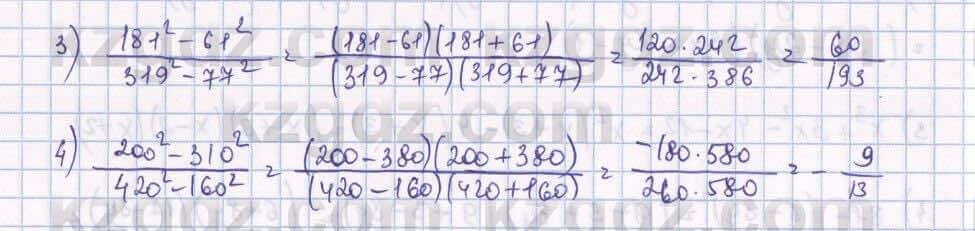 3) (181² - 61²)/(319² - 77²) = ((181-61)(181+61))/((319-77)(319+77)) = (120·242)/(242·386) = 60/193
4) (200² - 310²)/(420² - 160²) = ((200-380)(200+380))/((420-160)(420+160)) = (-180·580)/(260·580) = - 9/13
kzgdz.com